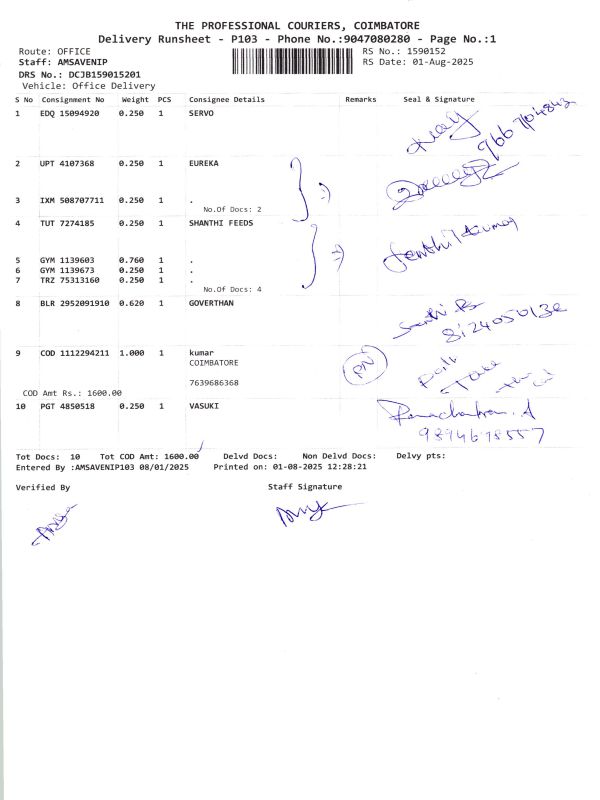 THE PROFESSIONAL COURIERS, COIMBATORE
Delivery Runsheet - P103 - Phone No.:9047080280 - Page No.:1
Route: OFFICE RS No.: 1590152
Staff: AMSAVENIP RS Date: 01-Aug-2025
DRS No.: DCJB159015201
Vehicle: Office Delivery
S No Consignment No Weight PCS Consignee Details Remarks Seal & Signature
1 EDQ 15094920 0.250 1 SERVO
2 UPT 4107368 0.250 1 EUREKA
3 IXM 508707711 0.250 1 .
No.Of Docs: 2
4 TUT 7274185 0.250 1 SHANTHI FEEDS
Senthil Kumar
5 GYM 1139603 0.760 1 .
6 GYM 1139673 0.250 1 .
7 TRZ 75313160 0.250 1 .
No.Of Docs: 4
8 BLR 2952091910 0.620 1 GOVERTHAN
8124050132
9 COD 1112294211 1.000 1 kumar
COIMBATORE
PN
7639686368
COD Amt Rs.: 1600.00
10 PGT 4850518 0.250 1 VASUKI
9894678557
Tot Docs: 10 Tot COD Amt: 1600.00 Delvd Docs: Non Delvd Docs: Delvy pts:
Entered By :AMSAVENIP103 08/01/2025 Printed on: 01-08-2025 12:28:21
Verified By Staff Signature